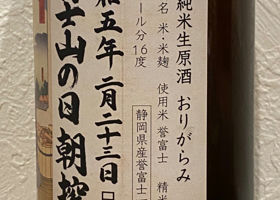 純米生原酒 おりがらみ
名 米・米麹 使用米 誉富士 精米
ール分16度
静岡県産誉富士
五年 二月二十三日
士山の日 朝搾